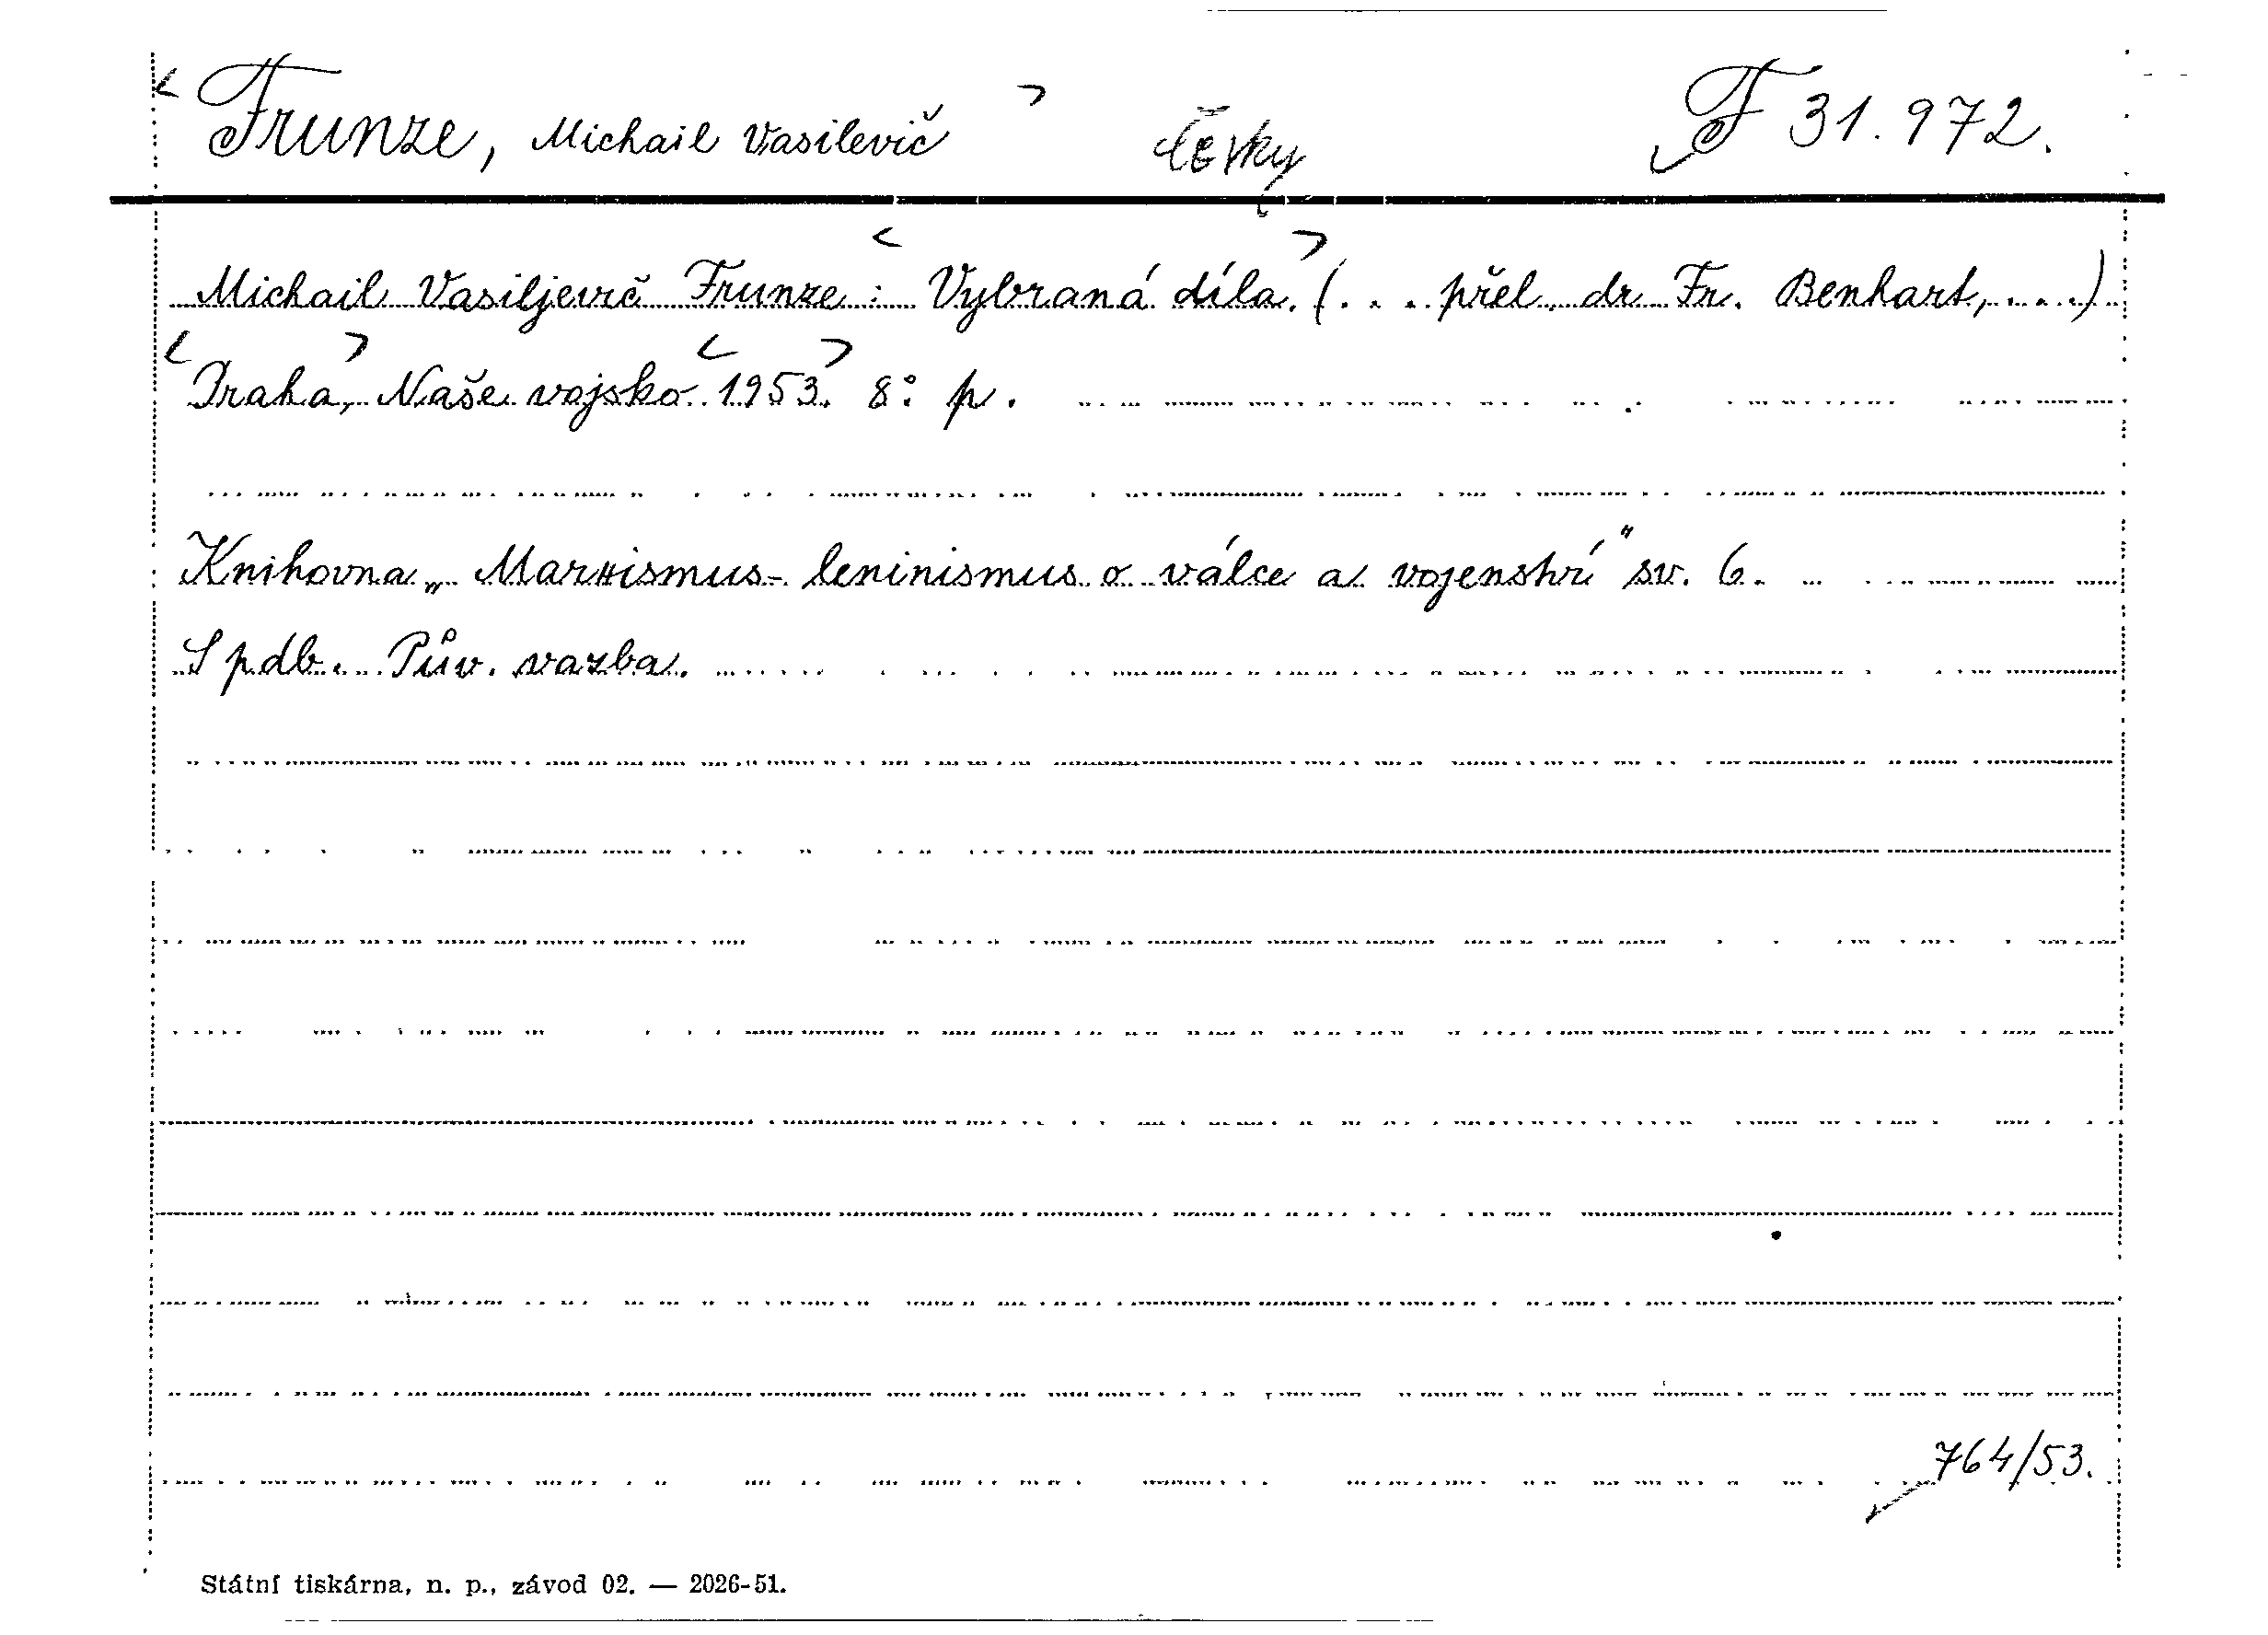 <Frunze, Michail Vasilevič> česky F 31.972.
Michail Vasiljevič Frunze: <Vybraná díla.> (... přel. dr Fr. Benhart, ...)
<Praha,> Naše vojsko <1953.> 8° p.
Knihovna „Marxismus-leninismus o válce a vojenství" sv. 6.
S pdb. Pův. vazba.
764/53.
Státní tiskárna, n. p., závod 02. — 2026-51.